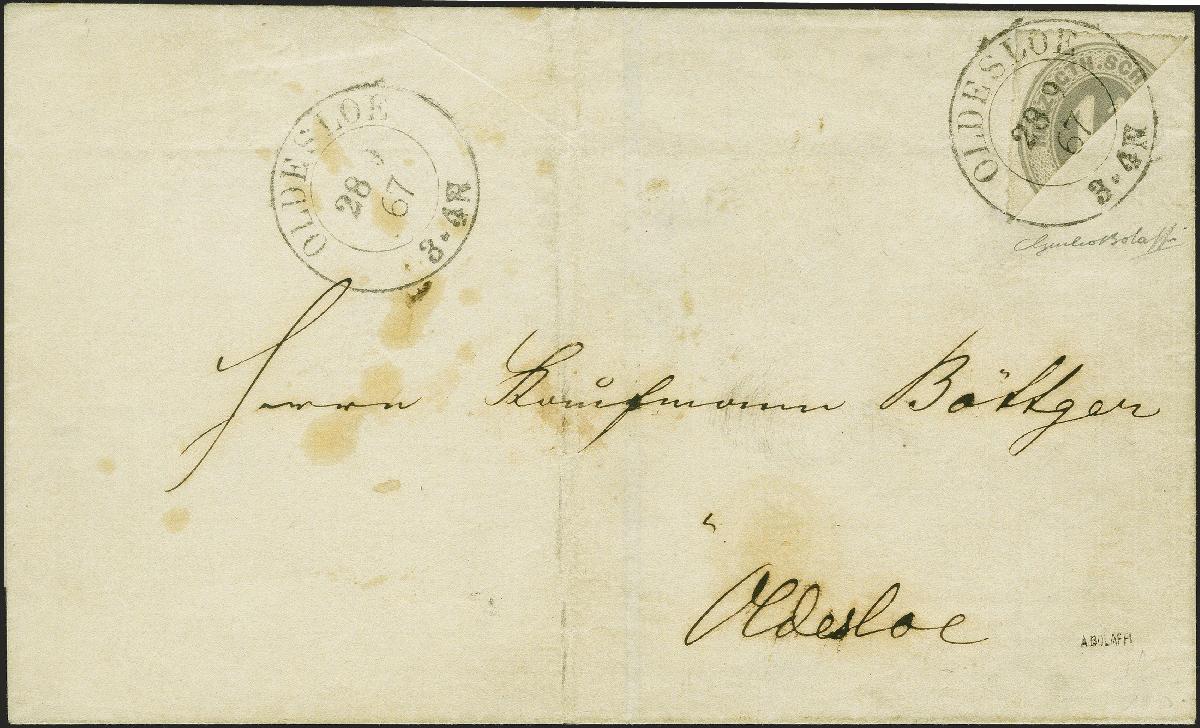 OLDESLOE
28
67
3-4N
OLDESLOE
28 9
67
3-4N
HERZOGTH. SCH
1
GiulioBolaffi
Herrn Kaufmann Böttger
Oldesloe
A.BOLAFFI